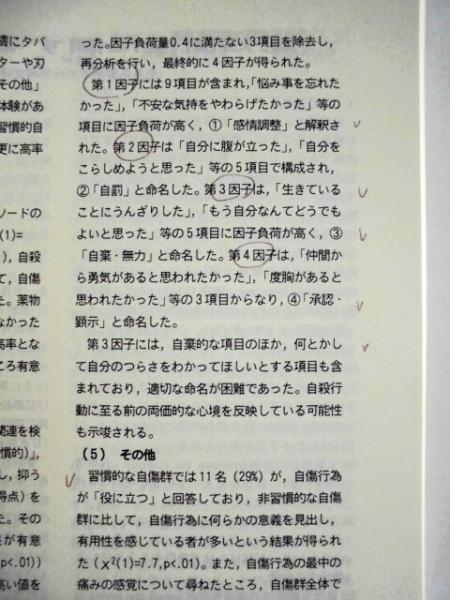 膚にタバ
ターや刃
その他」
体験があ
習慣的自
更に高率
ソードの
(1)=
),自殺
て,自傷
た。薬物
なかった
高率とな
ころ有意
関連を検
慣的)」,
し,抑う
得点)を
た。その
果が有意
p<.01))
高い値を
った。因子負荷量0.4に満たない3項目を除去し,
再分析を行い,最終的に4因子が得られた。
第1因子には9項目が含まれ,「悩み事を忘れた
かった」,「不安な気持をやわらげたかった」等の
項目に因子負荷が高く,①「感情調整」と解釈さ
れた。第2因子は「自分に腹が立った」,「自分を
こらしめようと思った」等の5項目で構成され,
②「自罰」と命名した。第3因子は,「生きている
ことにうんざりした」,「もう自分なんてどうでも
よいと思った」等の5項目に因子負荷が高く,③
「自棄・無力」と命名した。第4因子は,「仲間か
ら勇気があると思われたかった」,「度胸があると
思われたかった」等の3項目からなり,④「承認・
顕示」と命名した。
第3因子には,自棄的な項目のほか,何とかし
て自分のつらさをわかってほしいとする項目も含
まれており,適切な命名が困難であった。自殺行
動に至る前の両価的な心境を反映している可能性
も示唆される。
(5) その他
習慣的な自傷群では11名(29%)が,自傷行為
が「役に立つ」と回答しており,非習慣的な自傷
群に比して,自傷行為に何らかの意義を見出し,
有用性を感じている者が多いという結果が得られ
た(χ²(1)=7.7,p<.01)。また,自傷行為の最中の
痛みの感覚について尋ねたところ,自傷群全体で